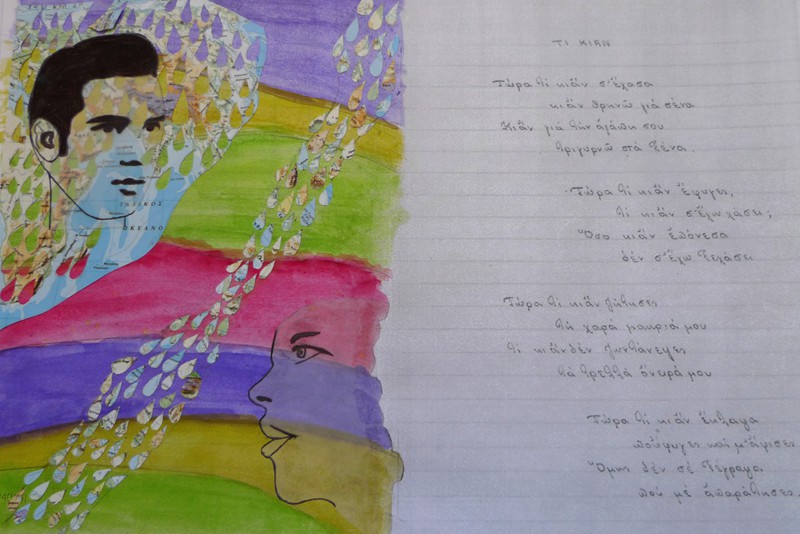 ΤΙ ΚΙΑΝ
Τώρα τί κι ἄν σ' ἔχασα
κι ἄν θρηνῶ γιά σένα
Κι ἄν γιά τήν ἀγάπη σου
τριγυρνῶ στά ξένα.
Τώρα τί κι ἄν ἔφυγες,
τί κι ἄν σ' ἔχω χάσει;
Ὅσο κι ἄν ἐπόνεσα
δέν σ' ἔχω ξεχάσει
Τώρα τί κι ἄν ζήτησες
τή χαρά μακριά μου
τί κι ἄν δέν ζωντάνεψες
τά τρελλά ὄνειρά μου
Τώρα τί κι ἄν ἔκλαψα
πού 'φυγες καί μ' ἄφισες
Ὅμως δέν σέ ξέγραψα
πού μέ ἀπαράτησες.
ΩΚΕΑΝΟ